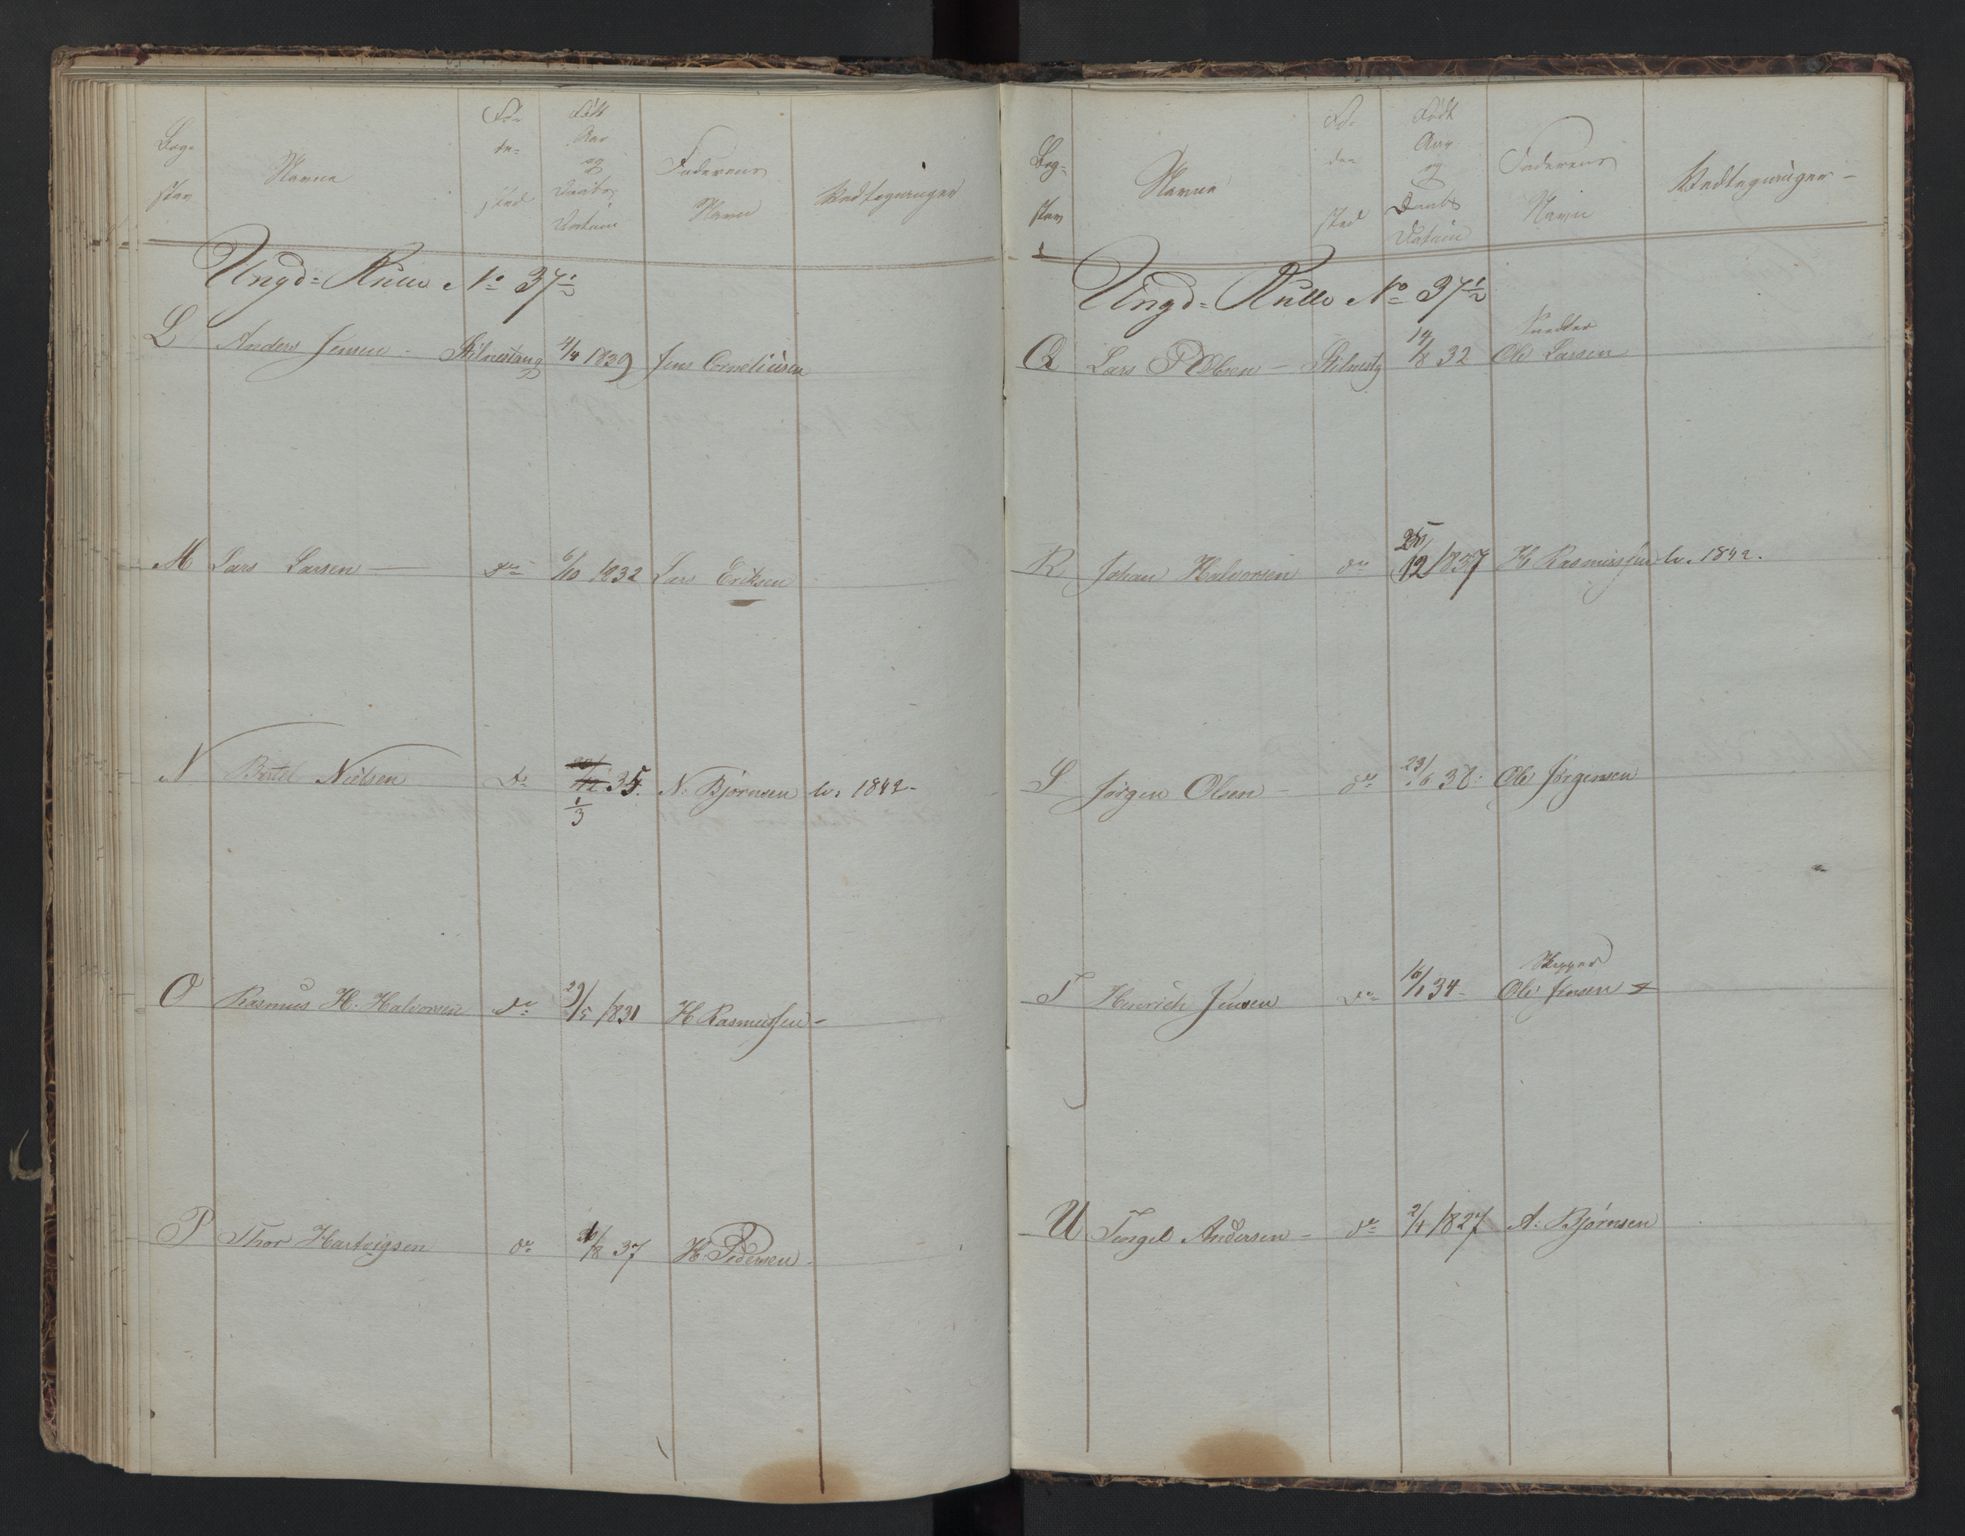 Bog-
stav
Navne
Fø-
de-
sted
Født
Aar
og
Daabs
Datum
Faderens
Navn
Vedtegninger
Ungd= Rulle No 37½
L Anders Jensen - Stilnestang 4/4 1839 Jens Corneliusen
M Lars Larsen — do 6/10 1832 Lars Eriksen
N Bertel Nielsen do 35. N. Bjørnsen lv. 1842-
1/3
O Rasmus H. Halvorsen do 29/5 1831 H Rasmussen -
P Thor Hartvigsen do 37 H. Pedersen
Bog-
stav
Navne
Fø-
de-
sted
Født
Aar
og
Daabs
Datum
Faderens
Navn
Vedtegninger -
Ungd= Rulle No 37½
Q Lars P Olsen - Stilnestg 14/8 32 Ole Larsen
R Johan Halvorsen do 25/12 1837 H Rasmussen lv. 1842.
S Jørgen Olsen - do 38. Ole Jørgensen
Skipper
T Henrich Jensen do 34- Ole Jensen
U Tengel Andersen - do 1827 A. Bjørnsen